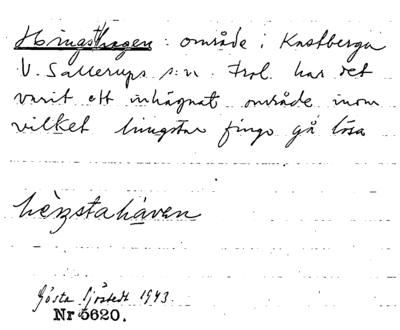 Hingsthagen : område i Kastberga
V. Sallerups s:n. Trol. har det
varit ett inhägnat område inom
vilket hingstar fingo gå lösa
hèŋstahāven
Gösta Sjöstedt 1943.
Nr 5620.